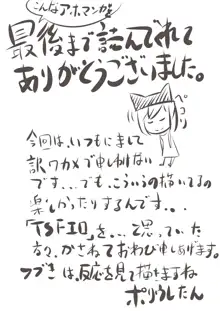 こんなアホマンガを
最後まで読んでくれて
ありがとうございました。
ペコリ
今回は、いつにもまして
訳ワカメで申し訳ない
です...でも、こういうの描いてるの
楽しかったりするんです...
「TSFIO」を...と思っていた
方々、かさねておわび申しあげます。
つづきは、反応を見て描きますね
ポリうしたん